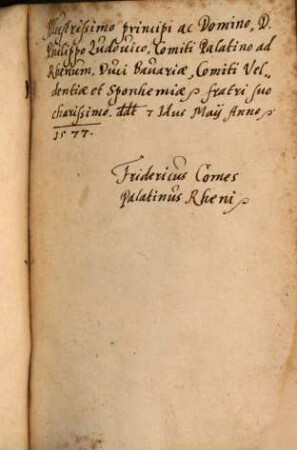 Illustrissimo principi ac Domino, D.
Philippo Ludovico, Comiti Palatino ad
Rhenum, Duci Bavariæ, Comiti Vel„
dentiæ et Sponhemiæ fratri suo
charissimo. ddt 7 Idus Maij Anno
1577.
Fridericus Comes
Palatinus Rheni